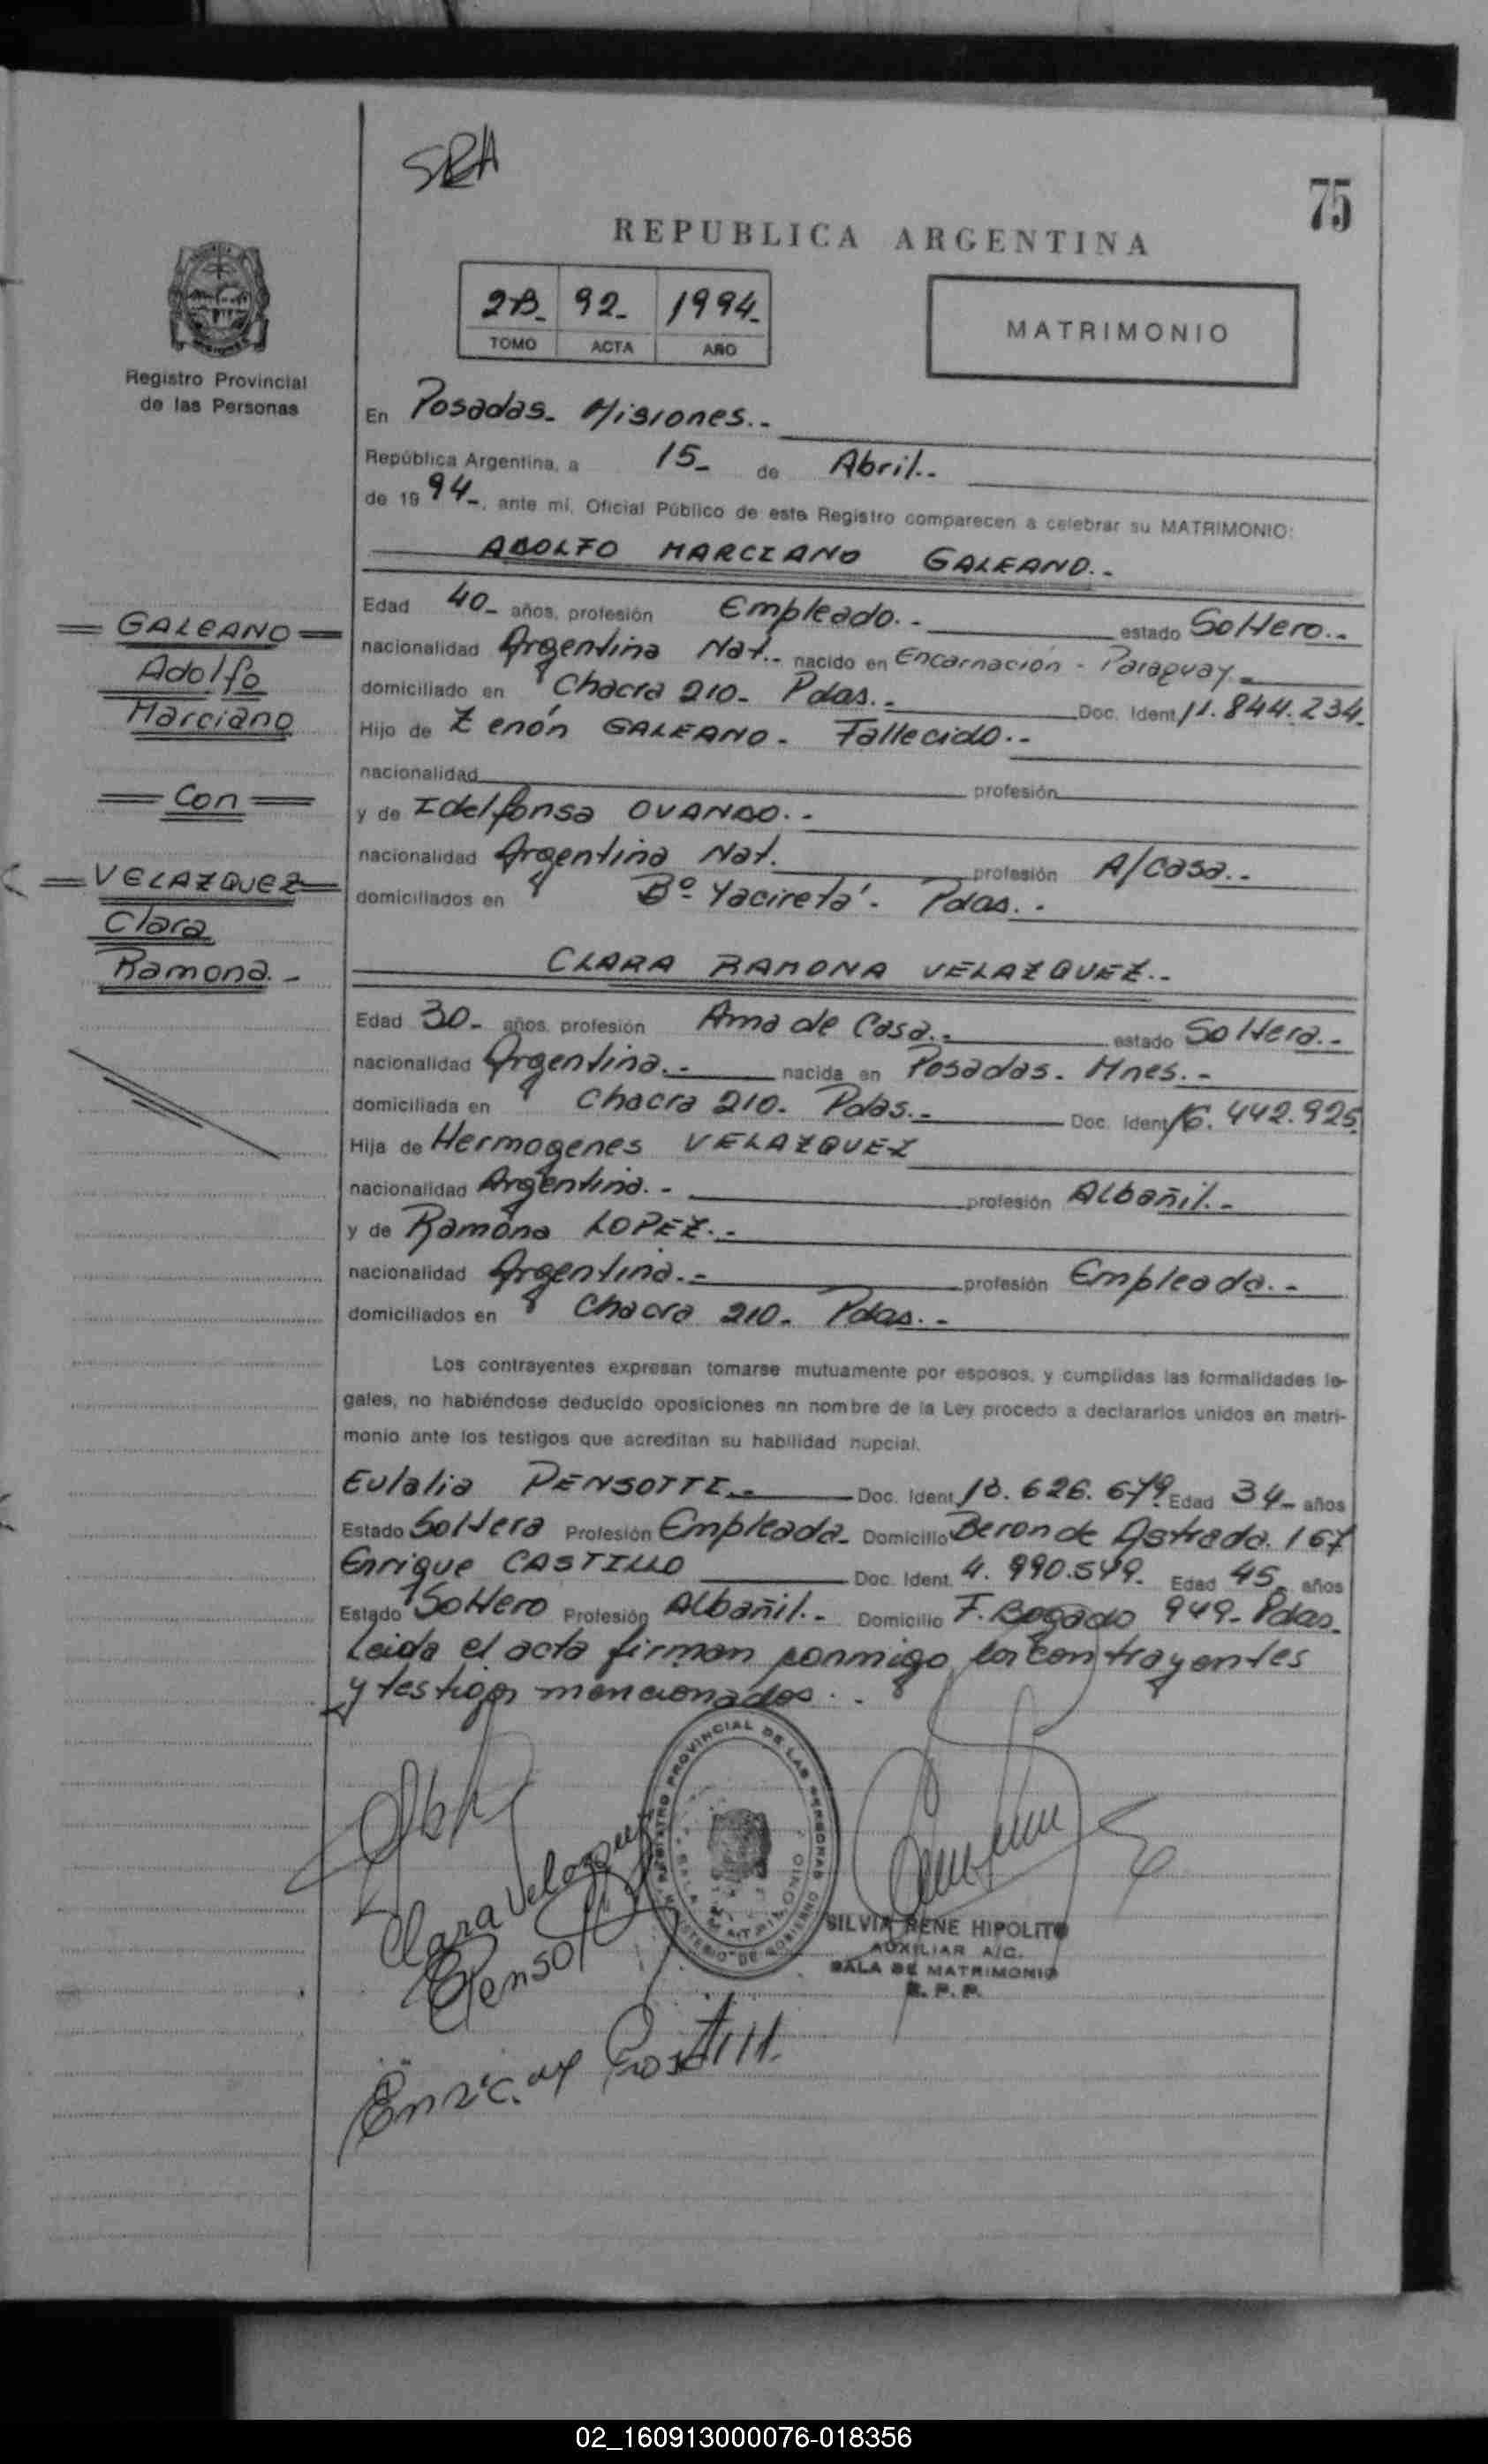 SRA
75
REPUBLICA ARGENTINA
2-B_ 92_ 1994_
TOMO ACTA AÑO
MATRIMONIO
Registro Provincial
de las Personas
En Posadas_ Misiones..-
República Argentina, a 15_ de Abril..-
de 1994_, ante mí, Oficial Público de este Registro comparecen a celebrar su MATRIMONIO:
ADOLFO MARCIANO GALEANO..-
Edad 40_ años, profesión Empleado..- estado Soltero..-
nacionalidad Argentina Nat..- nacido en Encarnación - Paraguay.-
domiciliado en Chacra 210- Pdas..- Doc. Ident. 11.844.234.
Hijo de Zenón GALEANO- Fallecido..-
nacionalidad profesión
y de Idelfonsa OVANDO..-
nacionalidad Argentina Nat. profesión A/casa..-
domiciliados en Bº Yacireta'- Pdas..-
CLARA RAMONA VELAZQUEZ..-
Edad 30_ años, profesión Ama de Casa..- estado Soltera..-
nacionalidad Argentina..- nacida en Posadas- Mnes..-
domiciliada en Chacra 210- Pdas..- Doc. Ident. 16.442.925.
Hija de Hermogenes VELAZQUEZ
nacionalidad Argentina..- profesión Albañil..-
y de Ramona LOPEZ..-
nacionalidad Argentina..- profesión Empleada..-
domiciliados en Chacra 210- Pdas..-
Los contrayentes expresan tomarse mutuamente por esposos, y cumplidas las formalidades le-
gales, no habiéndose deducido oposiciones en nombre de la Ley procedo a declararlos unidos en matri-
monio ante los testigos que acreditan su habilidad nupcial.
Eulalia PENSOTTI..- Doc. Ident. 13.626.679. Edad 34_ años
Estado Soltera Profesión Empleada_ Domicilio Beron de Astrada. 167
Enrique CASTILLO Doc. Ident. 4.990.549. Edad 45_ años
Estado Soltero Profesión Albañil..- Domicilio F. Bogado 949- Pdas_
Leida el acta firman conmigo los contrayentes
y testigos mencionados..-
GALEANO
Adolfo
Marciano
Con
VELAZQUEZ
Clara
Ramona.-
Clara Velazquez
Pensotti
REGISTRO PROVINCIAL DE LAS PERSONAS
MINISTERIO DE GOBIERNO
SALA MATRIMONIO
SILVIA RENE HIPOLITO
AUXILIAR A/C.
SALA DE MATRIMONIO
R. P. P.
Enrique Castillo
02_160913000076-018356